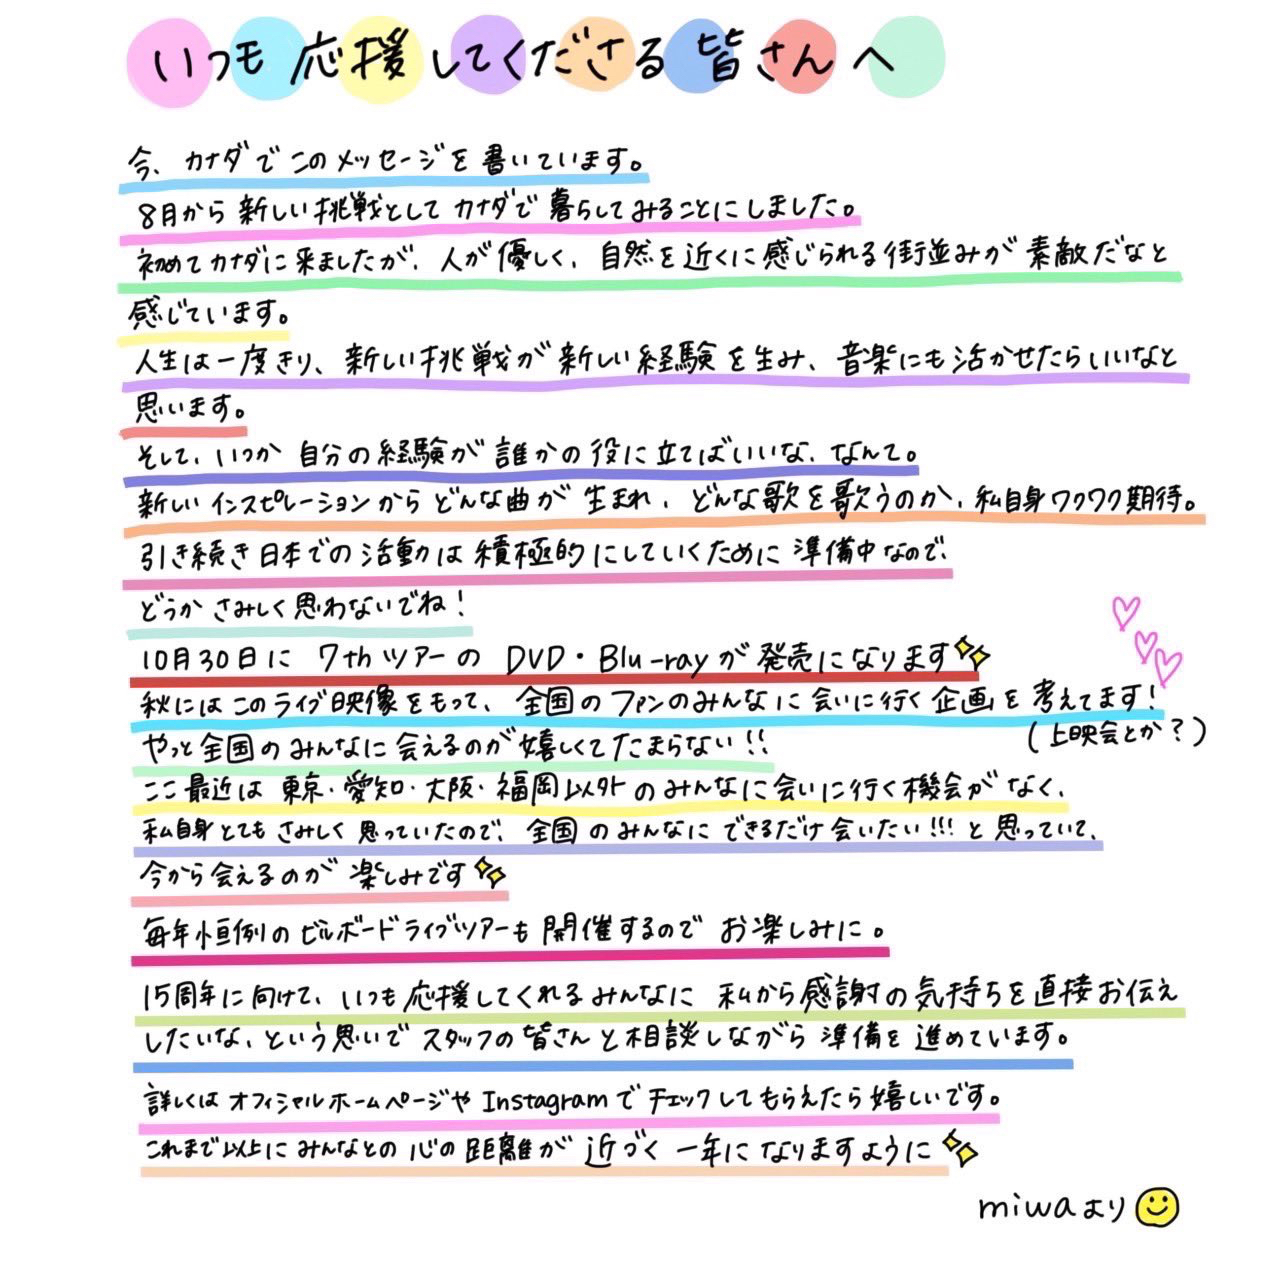 いつも応援してくださる皆さんへ
今、カナダでこのメッセージを書いています。
8月から新しい挑戦としてカナダで暮らしてみることにしました。
初めてカナダに来ましたが、人が優しく、自然を近くに感じられる街並みが素敵だなと
感じています。
人生は一度きり、新しい挑戦が新しい経験を生み、音楽にも活かせたらいいなと
思います。
そして、いつか自分の経験が誰かの役に立てばいいな、なんて。
新しいインスピレーションからどんな曲が生まれ、どんな歌を歌うのか、私自身ワクワク期待。
引き続き日本での活動は積極的にしていくために準備中なので、
どうかさみしく思わないでね!
10月30日に 7thツアーの DVD・Blu-rayが発売になります✨
秋にはこのライブ映像をもって、全国のファンのみんなに会いに行く企画を考えてます!
(上映会とか?)
やっと全国のみんなに会えるのが嬉しくてたまらない!!
ここ最近は東京・愛知・大阪・福岡以外のみんなに会いに行く機会がなく、
私自身とてもさみしく思っていたので、全国のみんなにできるだけ会いたい!!!と思っていて、
今から会えるのが楽しみです✨
毎年恒例のビルボードライブツアーも開催するのでお楽しみに。
15周年に向けて、いつも応援してくれるみんなに私から感謝の気持ちを直接お伝え
したいな、という思いでスタッフの皆さんと相談しながら準備を進めています。
詳しくはオフィシャルホームページやInstagramでチェックしてもらえたら嬉しいです。
これまで以上にみんなとの心の距離が近づく一年になりますように✨
miwaより